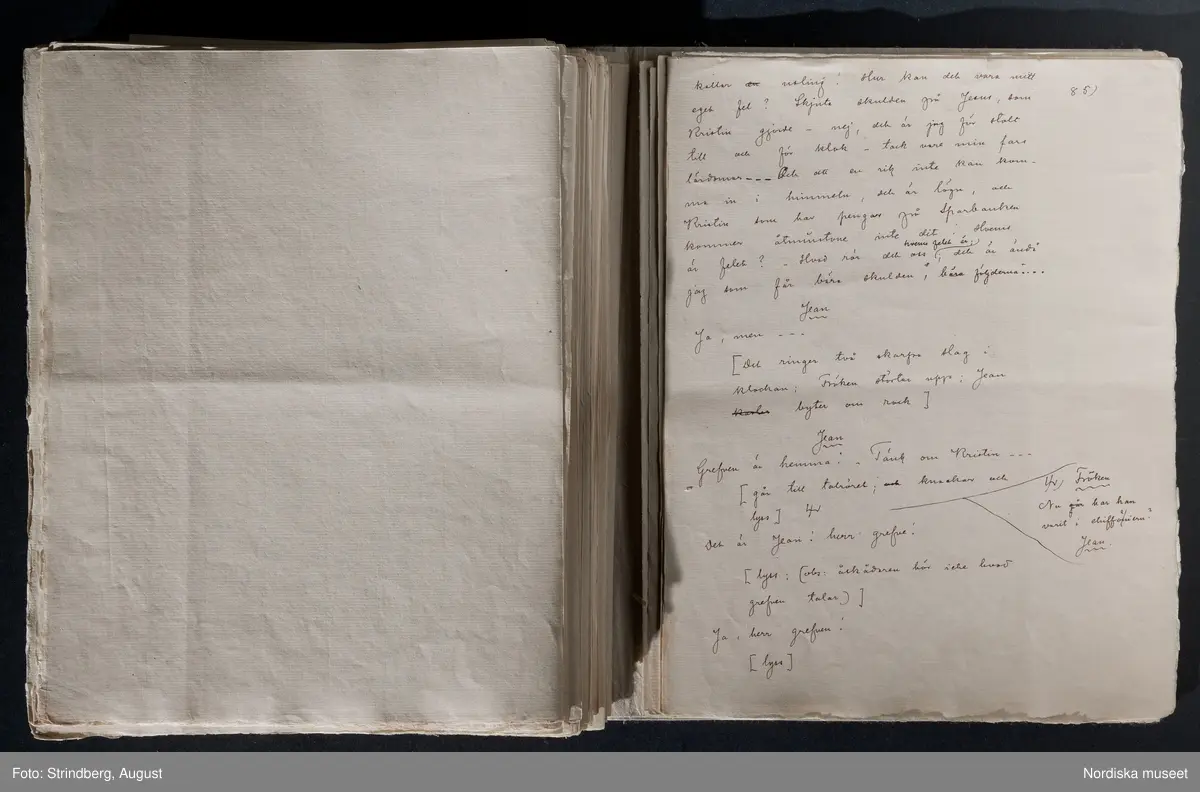 85)
kallar en usling! Hur kan det vara mitt
eget fel? Skjuta skulden på Jesus, som
Kristin gjorde – nej, det är jag för stolt
till och för klok – tack vare min fars
lärdomar – – – Och att en rik inte kan kom-
ma in i himmeln, det är lögn, och
Kristin som har pengar på Sparbanken
kommer åtminstone inte dit! Hvems
är felet? – Hvad rör det oss hvems felet är; det är ändå
jag som får bära skulden, bära följderna...
Jean
Ja, men – – –
[Det ringer två skarpa slag i
klockan; Fröken störtar upp; Jean
byter om rock]
Jean
Grefven är hemma! – Tänk om Kristin – – –
[går till talröret; och knackar och
lyss]
Fröken
Nu har han
varit i chiffonieren?
Jean.
Det är Jean! herr grefve!
[lyss; (obs: åskådaren hör icke hvad
grefven talar)]
Ja, herr grefven!
[lyss]
Foto: Strindberg, August
Nordiska museet